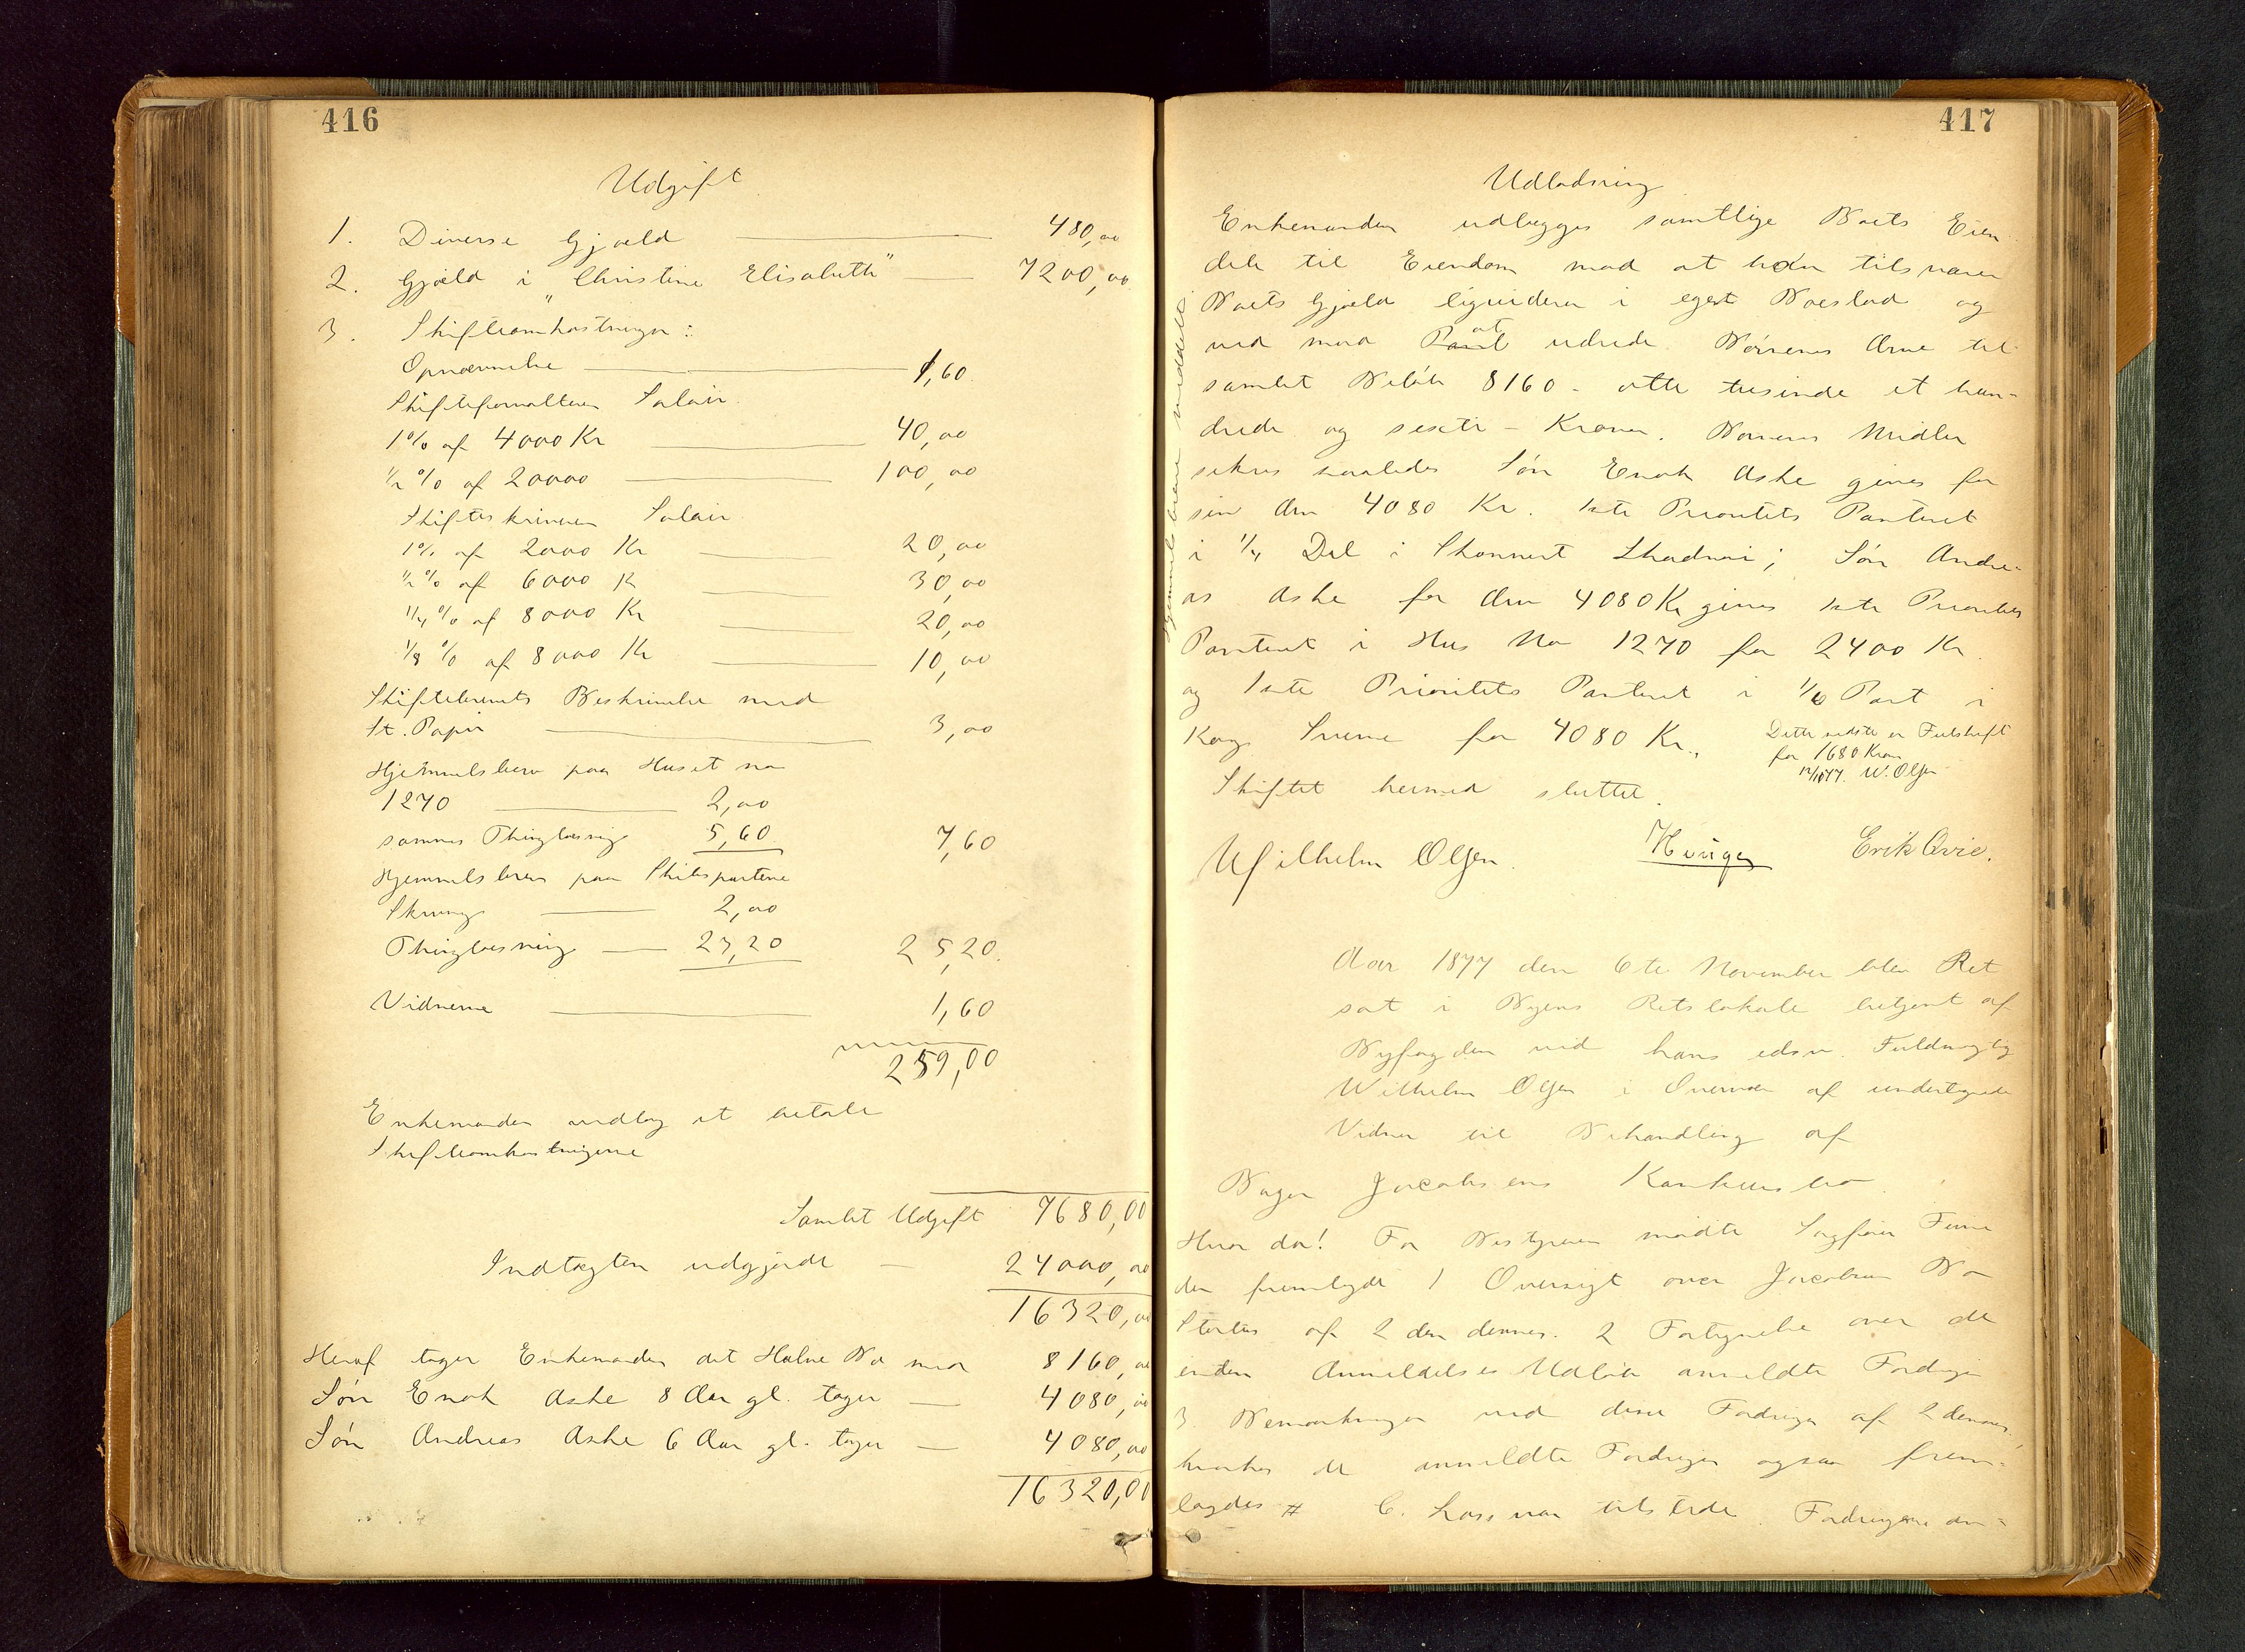 416
Udgift
1. Diverse Gjæld 480,00
2. Gjæld i "Christine Elisabeth" 7200,00
3. Skifteomkostninger:
Opnævnelse 1,60
Skifteforvalteren Salair
1% af 4000 Kr 40,00
½% af 20000 100,00
Skifteskriveren Salair
1% af 2000 Kr 20,00
½% af 6000 K 30,00
¼% af 8000 Kr 20,00
⅛% af 8000 Kr 10,00
Skiftebrevets Beskrivelse med
st. Papir 3,00
Hjemmelsbrev paa Huset no
1270 2,00
sammes Thinglæsning 5,60 7,60
Hjemmelsbrev paa Skibsparterne
Skrivning 2,00
Thinglæsning 23,20 25,20
Vidnerne 1,60
259,00
Enkemanden vedtog at betale
Skifteomkostningerne
Samlet Udgift 7680,00
Indtægten udgjorde 24000,00
16320,00
Heraf tager Enkemanden det Halve Bo med 8160,00
Søn Enok Aske 8 Aar gl. tager 4080,00
Søn Andreas Aske 6 Aar gl. tager 4080,00
16320,00
417
Udlodning
Enkemanden udlægges samtlige Boets Eien
dele til Eiendom mod at han tilsvarer
Boets Gjæld liquiderer i eget Boeslod og
ved mod at udrede Børnenes Arve til
samlet Beløb 8160 - otte tusinde et hun-
drede og sexti - Kroner. Børnenes Midler
sikres saaledes Søn Enok Aske gives for
sin Arv 4080 Kr. 1ste Prioritets Panteret
i ¼ Del i Skonnert ; Søn Andre-
as Aske for Arv 4080 Kr gives 1ste Prioritets
Panteret i Hus No 1270 for 2400 Kr
og 1ste Prioritets Panteret i 1/6 Part i
for 4080 Kr.,
Dette sidste er Feilskrift
for 1680 Kroner
W. Olsen
Skiftet hermed sluttet.
Wilhelm Olsen. Erik Qvie.
Aar 1877 den 6te November blev Ret
sat i Byens Retslokale betjent af
Byfogden ved hans edsv. Fuldmægtig
Wilhelm Olsen i Overvær af undertegnede
Vidner til Behandling af
Bager Jacobsens Konkursbo
Hvor da! For Bestyreren mødte Sagfører
der fremlagde 1 Oversigt over Jacobsens Bo
Status af 2den dennes. 2 Fortegnelse over de
inden Anmeldelses Udløb anmeldte Fordringer
3. Bemærkninger ved disse Fordringer af 2 dennes,
hvorhos de anmeldte Fordringer ogsaa frem-
lagdes # C. var tilstede. Fordringerne